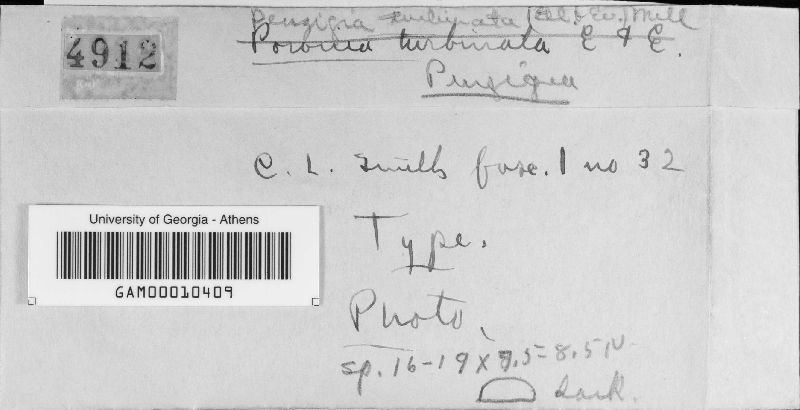 Penzigia turbinata (Ell & Ev.) Mill
4912
Poronia turbinata E & E.
Penzigia
C. L. Smith fasc. 1 no 32
University of Georgia - Athens
Type.
GAM00010409
Photo,
sp. 16-19 x 7.5-8.5 µ
dark.